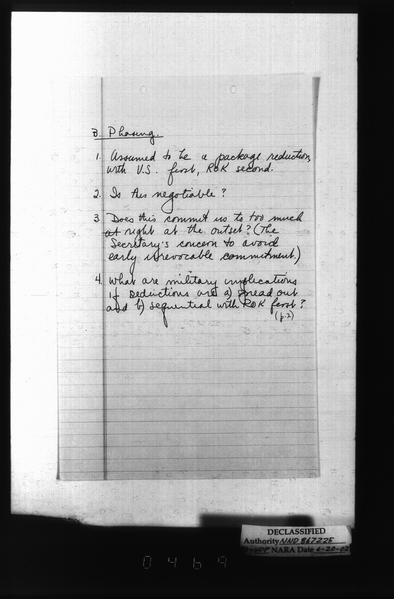 B. Phasing.
1. Assumed to be a package reduction,
with U.S. first, ROK second.
2. Is this negotiable?
3. Does this commit us to too much
at right at the outset? (The
Secretary's concern to avoid
early irrevocable commitment.)
4. What are military implications
if reductions are a) spread out
and b) sequential with ROK first?
(p.2)
DECLASSIFIED
Authority NND 867225
NARA Date 6-20-02
0469